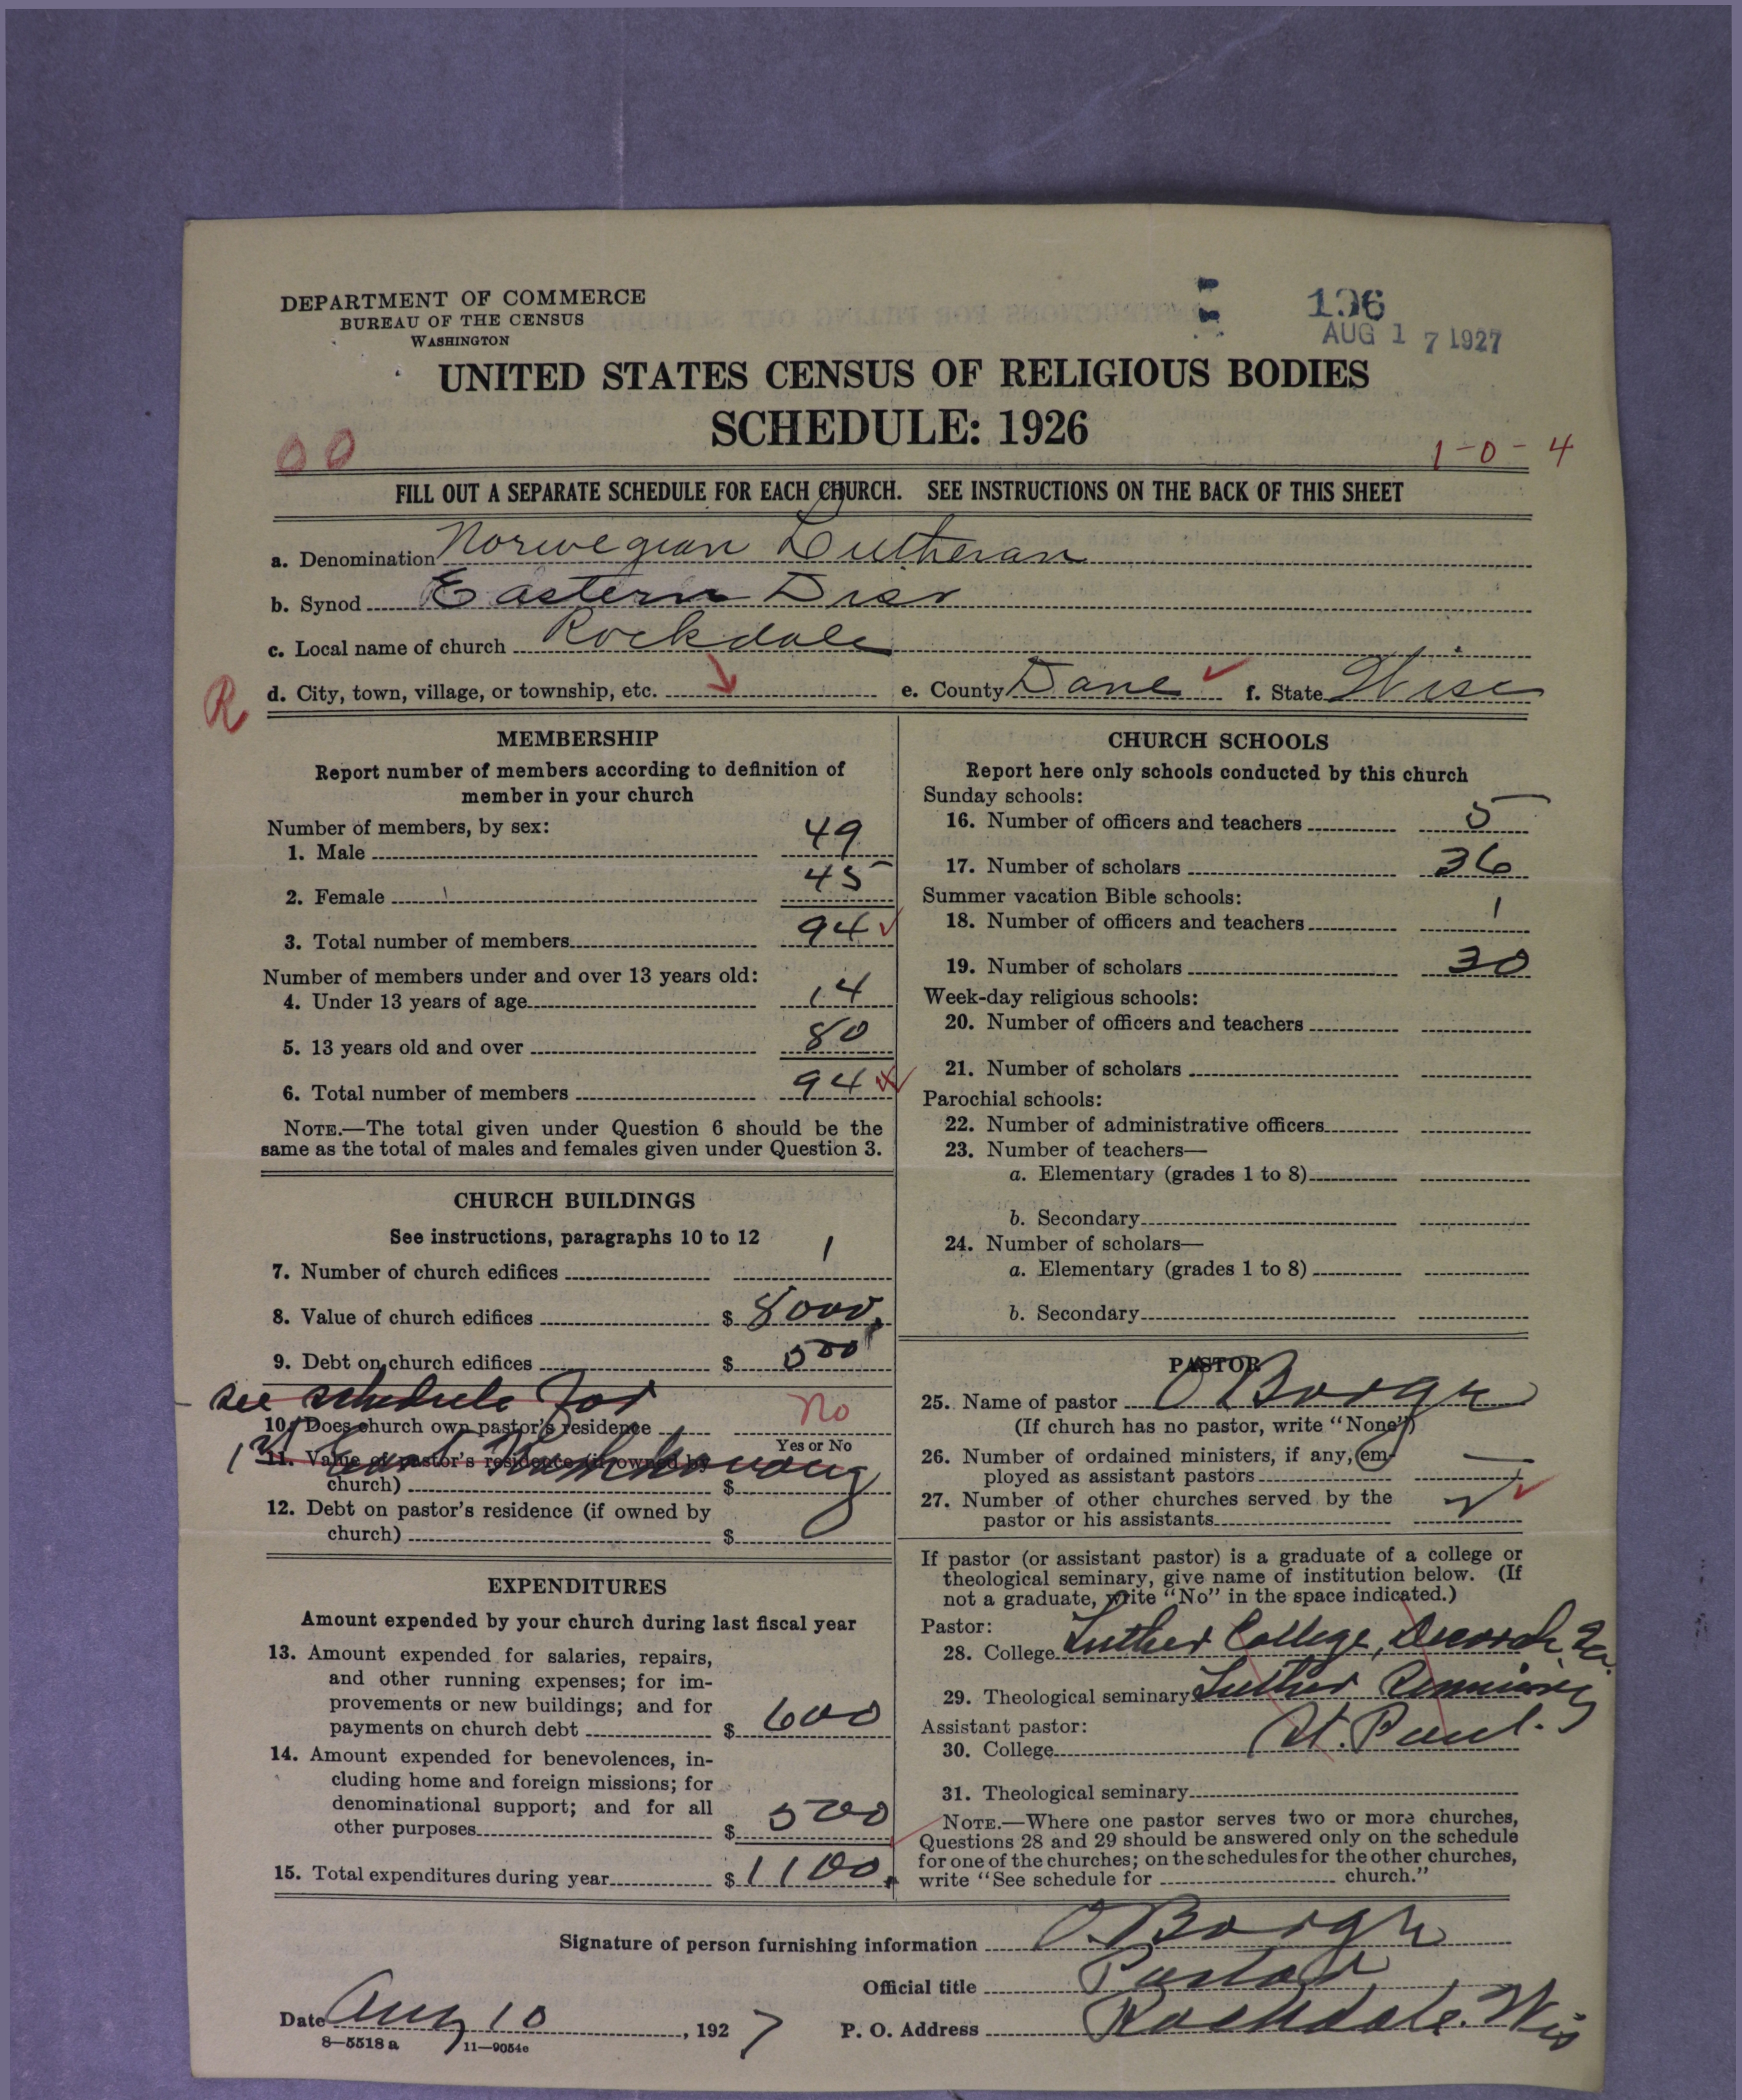 DEPARTMENT OF COMMERCE
BUREAU OF THE CENSUS
WASHINGTON
106
AUG 17 1927
UNITED STATES CENSUS OF RELIGIOUS BODIES
SCHEDULE: 1926
00
1-0-4
FILL OUT A SEPARATE SCHEDULE FOR EACH CHURCH. SEE INSTRUCTIONS ON THE BACK OF THIS SHEET
a. Denomination Norwegian Lutheran
b. Synod Eastern Dist
c. Local name of church Rockdale
R
d. City, town, village, or township, etc. e. County Dane f. State Wisc
MEMBERSHIP
Report number of members according to definition of
member in your church
Number of members, by sex:
1. Male 49
2. Female 45
3. Total number of members 94
Number of members under and over 13 years old:
4. Under 13 years of age 14
5. 13 years old and over 80
6. Total number of members 94
NOTE.—The total given under Question 6 should be the
same as the total of males and females given under Question 3.
CHURCH BUILDINGS
See instructions, paragraphs 10 to 12
7. Number of church edifices 1
8. Value of church edifices $ 8000
9. Debt on church edifices $ 500
see schedule for
10. Does church own pastor's residence No
Yes or No
11. Value of pastor's residence (if owned by
church) $
12. Debt on pastor's residence (if owned by
church) $
EXPENDITURES
Amount expended by your church during last fiscal year
13. Amount expended for salaries, repairs,
and other running expenses; for im-
provements or new buildings; and for
payments on church debt $ 600
14. Amount expended for benevolences, in-
cluding home and foreign missions; for
denominational support; and for all
other purposes $ 500
15. Total expenditures during year $ 1100
CHURCH SCHOOLS
Report here only schools conducted by this church
Sunday schools:
16. Number of officers and teachers 5
17. Number of scholars 36
Summer vacation Bible schools:
18. Number of officers and teachers 1
19. Number of scholars 30
Week-day religious schools:
20. Number of officers and teachers
21. Number of scholars
Parochial schools:
22. Number of administrative officers
23. Number of teachers—
a. Elementary (grades 1 to 8)
b. Secondary
24. Number of scholars—
a. Elementary (grades 1 to 8)
b. Secondary
PASTOR
25. Name of pastor O Borge
(If church has no pastor, write "None")
26. Number of ordained ministers, if any, em-
ployed as assistant pastors
27. Number of other churches served by the
pastor or his assistants
If pastor (or assistant pastor) is a graduate of a college or
theological seminary, give name of institution below. (If
not a graduate, write "No" in the space indicated.)
Pastor:
28. College Luther College, Decorah, Ia.
29. Theological seminary Luther Seminary
St. Paul.
Assistant pastor:
30. College
31. Theological seminary
NOTE.—Where one pastor serves two or more churches,
Questions 28 and 29 should be answered only on the schedule
for one of the churches; on the schedules for the other churches,
write "See schedule for church."
Signature of person furnishing information O. Borge
Official title Pastor
Date Aug 10, 1927 P. O. Address Rockdale, Wis
8—5518 a 11—9054e